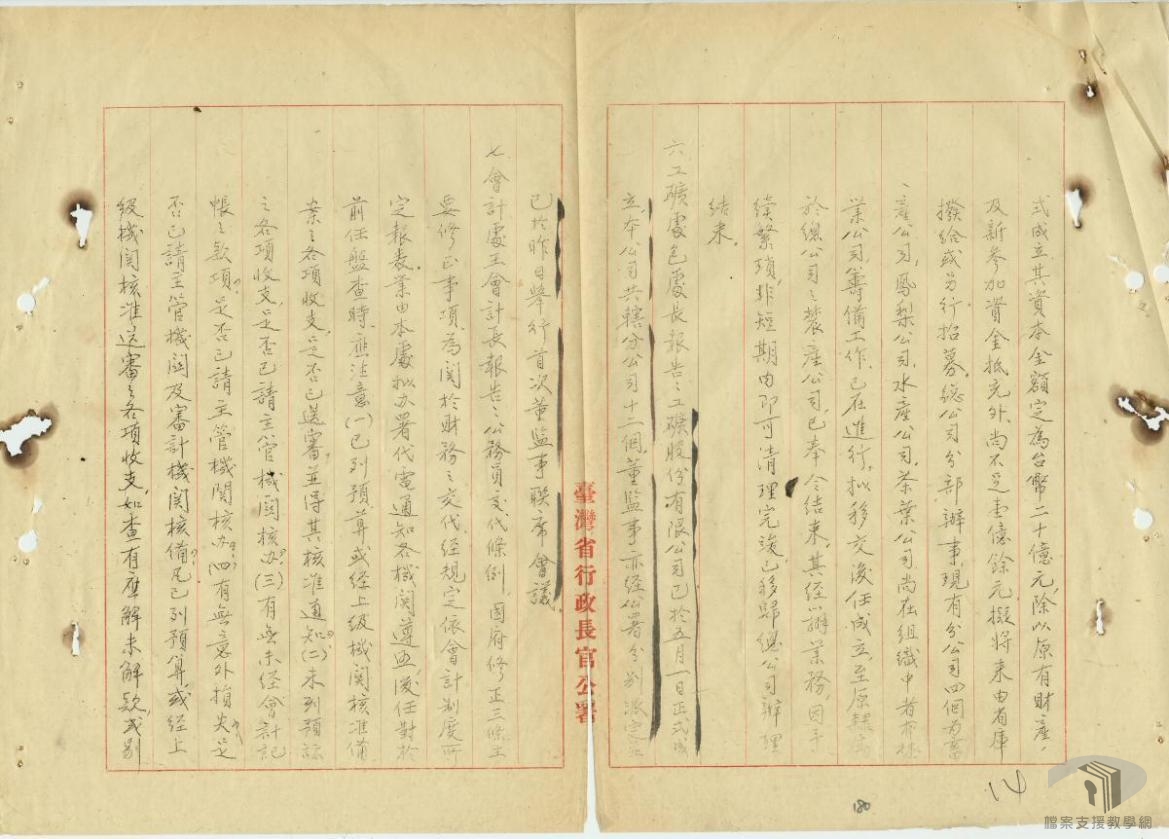 式成立其資本金額定為台幣二十億元,除以原有財產,
及新參加資金抵充外,尚不足壹億餘元,擬將來由省庫
撥給或另行招募。總公司分部辦事,現有分公司四個為畜
產公司,鳳梨公司,水產公司,茶葉公司尚在組織中者有林
業公司籌備工作,已在進行,擬移交後任成立,至原隸
於總公司之農產公司已奉令結束,其經辦業務因手
續繁瑣,非短期內即可清理完竣已移歸總公司辦理
結束。
六、工礦處包處長報告:工礦股份有限公司已於五月一日正式成
立本公司共轄分公司十二個,董監事亦經公署分別派定並
臺灣省行政長官公署
已於昨日舉行首次董監事聯席會議。
七、會計處王會計長報告:公務員交代條例,國府修正三條主
要修正事項為關於財務之交代,經規定依會計制度所
定報表,業由本處擬办署代電通知各機関遵照,後任對於
前任盤查時應注意(一)已列預算或經上級機関核准備
案之各項收支,是否已送審,並得其核准通知?(二)未列預
之各項收支,是否已請主管機関核办?(三)有無未經會計記
帳之款項?是否已請主管機関核办?(四)有無意外損失是
否已請主管機関及審計機関核備?凡已列預算,或經上
級機関核准送審之各項收支,如查有應解未解款或剔
14
180
檔案支援教學網